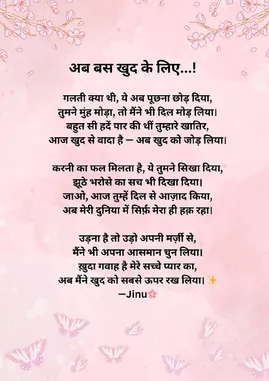 अब बस खुद के लिए...!
गलती क्या थी, ये अब पूछना छोड़ दिया,
तुमने मुंह मोड़ा, तो मैंने भी दिल मोड़ लिया।
बहुत सी हदें पार की थीं तुम्हारे खातिर,
आज खुद से वादा है — अब खुद को जोड़ लिया।
करनी का फल मिलता है, ये तुमने सिखा दिया,
झूठे भरोसे का सच भी दिखा दिया।
जाओ, आज तुम्हें दिल से आज़ाद किया,
अब मेरी दुनिया में सिर्फ़ मेरा ही हक़ रहा।
उड़ना है तो उड़ो अपनी मर्ज़ी से,
मैंने भी अपना आसमान चुन लिया।
ख़ुदा गवाह है मेरे सच्चे प्यार का,
अब मैंने खुद को सबसे ऊपर रख लिया। ✨
—Jinu🌸